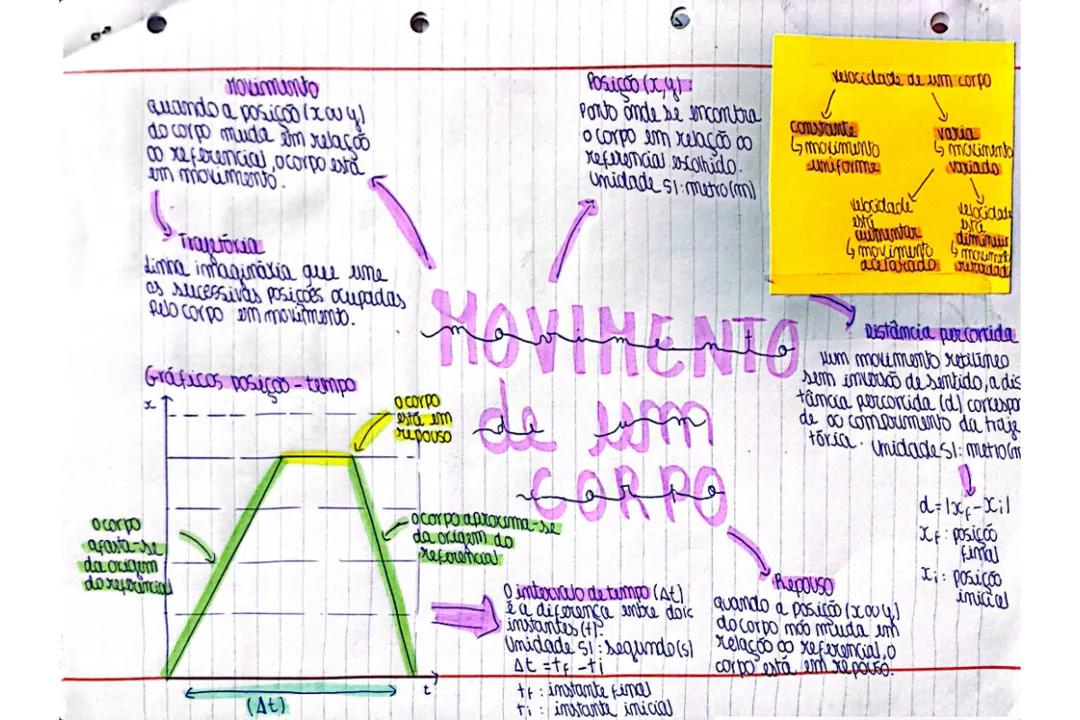 Movimento
quando a posição (x ou y)
do corpo muda em relação
ao referencial, o corpo está
em movimento.
Trajetória
Linha imaginária que une
as sucessivas posições ocupadas
pelo corpo em movimento.
Posição (x,y)
Ponto onde se encontra
o corpo em relação ao
referencial escolhido.
Unidade SI: metro (m)
velocidade de um corpo
constante
↳ movimento
uniforme
varia
↳ movimento
variado
velocidade
está
aumentar
↳ movimento
acelarado
velocidade
está
diminuir
↳ movimento
retardado
MOVIMENTO
movimento
de um
CORPO
corpo
Distância percorrida
num movimento retilíneo
sem inversão de sentido, a dis
tância percorrida (d) correspon
de ao comprimento da traje
tória. Unidade SI: metro (m
d = |xf - xi|
xf: posição
final
xi: posição
inicial
Gráficos posição - tempo
x
o corpo
está em
repouso
o corpo
afasta-se
da origem
do referencial
o corpo aproxima-se
da origem do
referencial
t
(Δt)
O intervalo de tempo (Δt)
é a diferença entre dois
instantes (t).
Unidade SI: segundo (s)
Δt = tf - ti
tf: instante final
ti: instante inicial
Repouso
quando a posição (x ou y)
do corpo não muda em
relação ao referencial, o
corpo está em repouso.